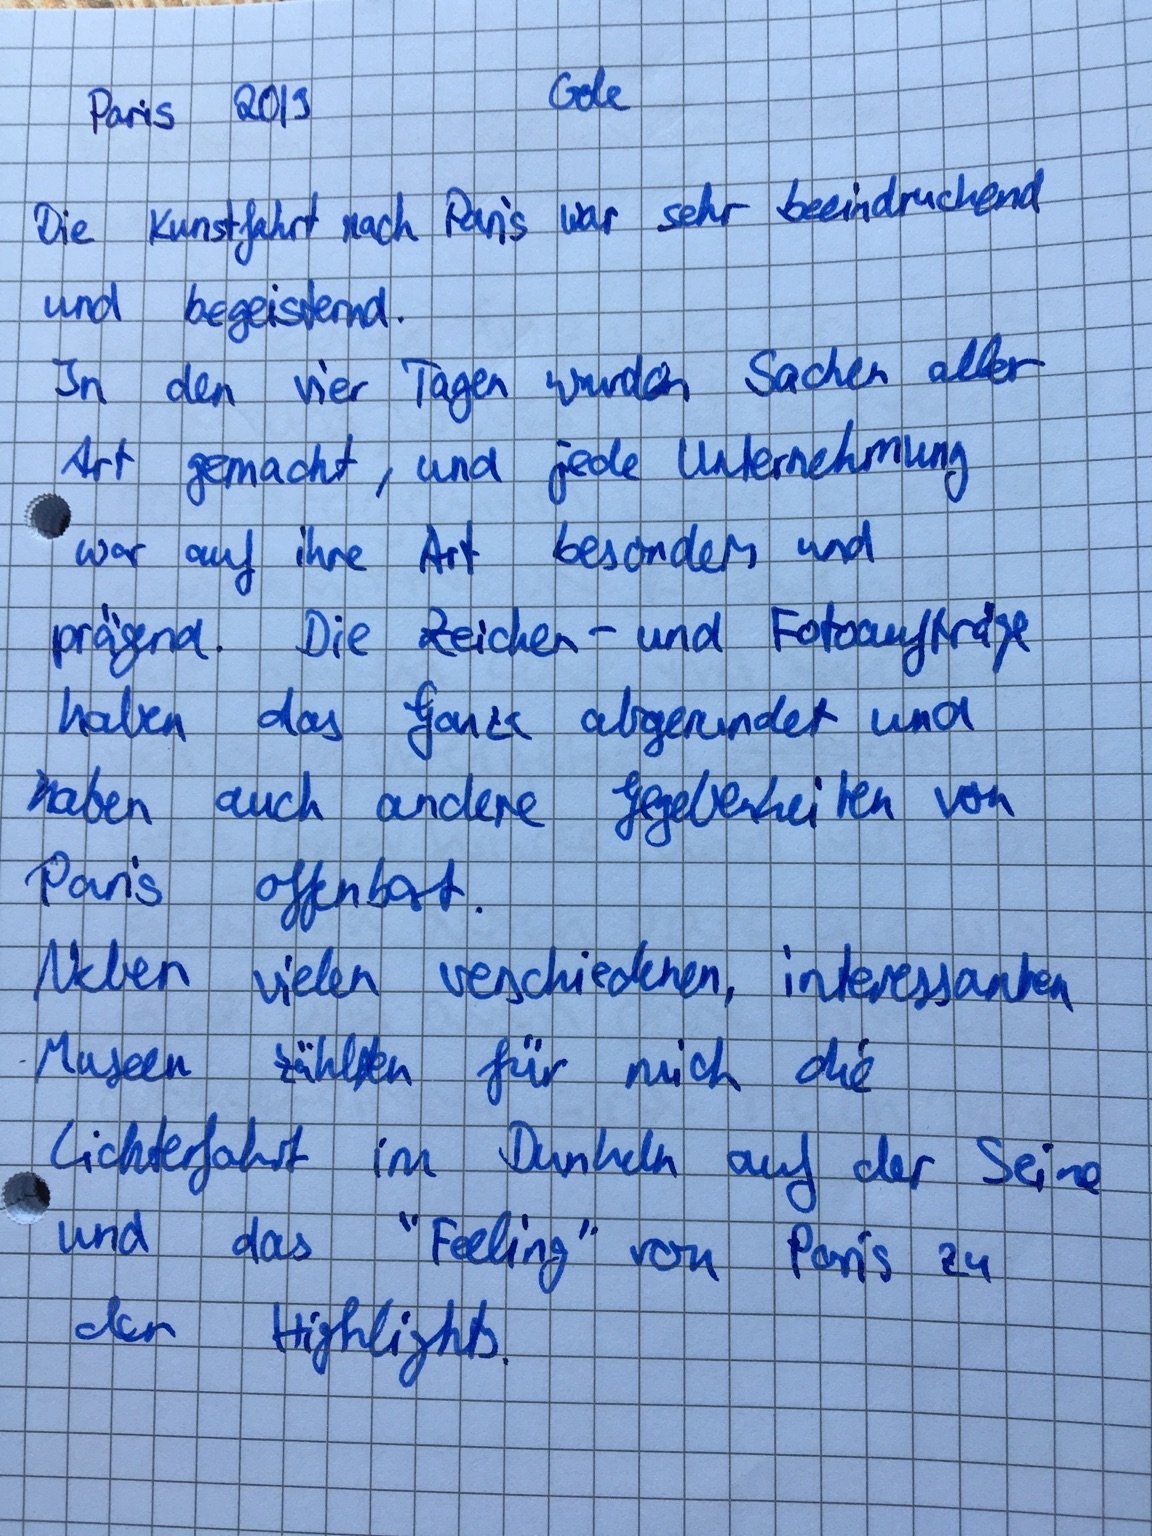 Paris 2019 Gole
Die Kunstfahrt nach Paris war sehr beeindruckend
und begeisternd.
In den vier Tagen wurden Sachen aller
Art gemacht, und jede Unternehmung
war auf ihre Art besonders und
prägend. Die Zeichen- und Fotoaufträge
haben das Ganze abgerundet und
haben auch andere Gegebenheiten von
Paris offenbart.
Neben vielen verschiedenen, interessanten
Museen zählten für mich die
Lichterfahrt im Dunkeln auf der Seine
und das "Feeling" von Paris zu
den Highlights.